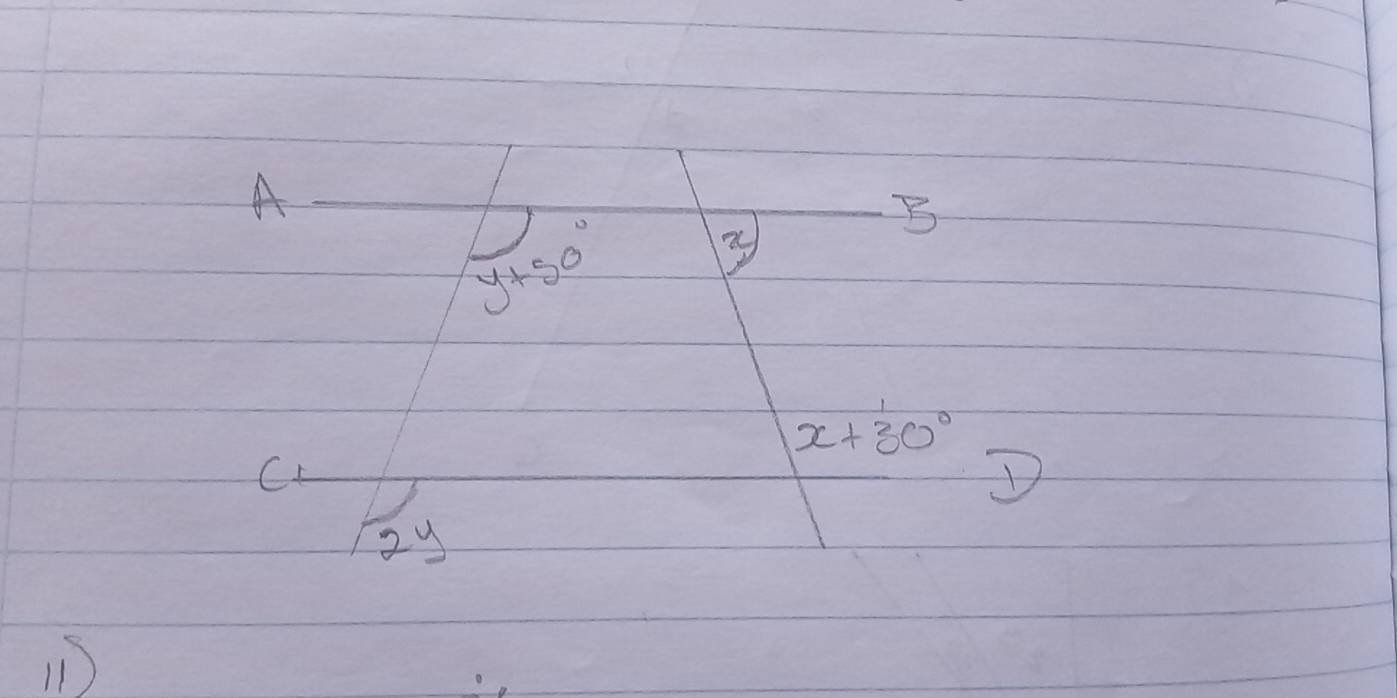 A B
y+50°
x
x+30°
C D
2y
11)